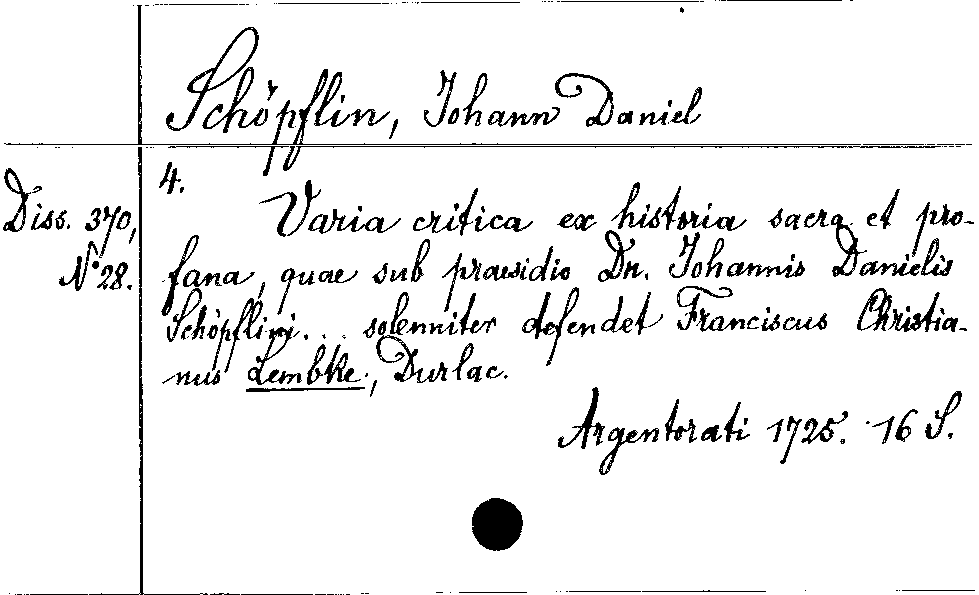 Schöpflin, Johann Daniel
4.
Diss. 370,
N° 28.
Varia critica ex historia sacra et pro-
fana, quae sub praesidio Dn. Johannis Danielis
Schöpflini... solenniter defendet Franciscus Christia-
nus Lembke, Durlac.
Argentorati 1725. 16 S.